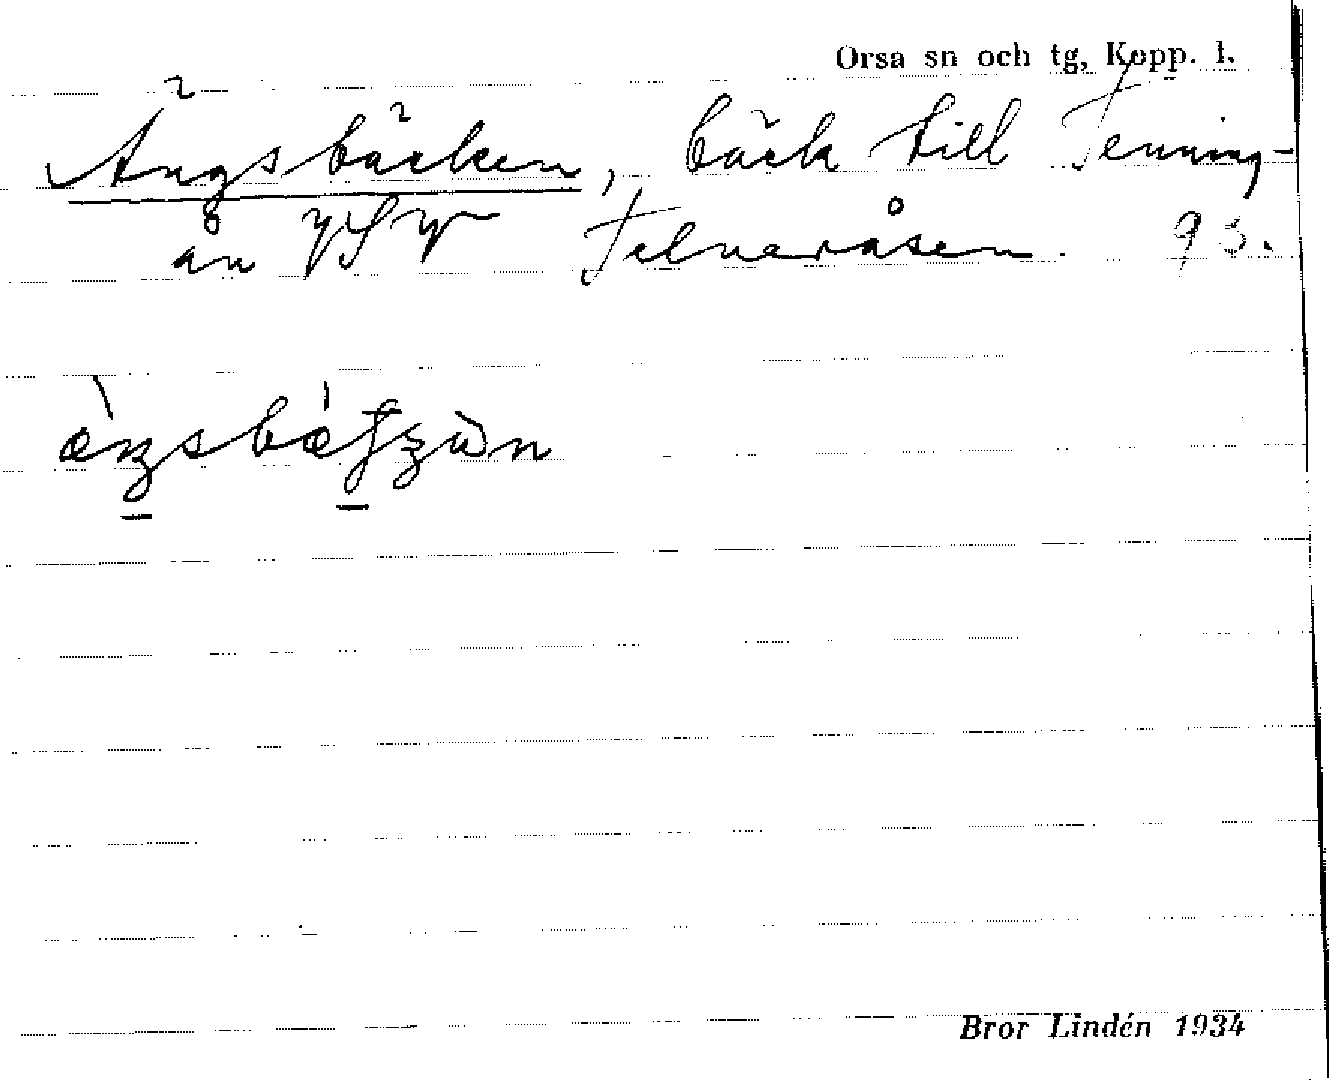 Orsa sn och tg, Kopp. l.
Ängsbäcken, bäck till Tenning-
ån VSV Telneråsen. 93.
Bror Lindén 1934